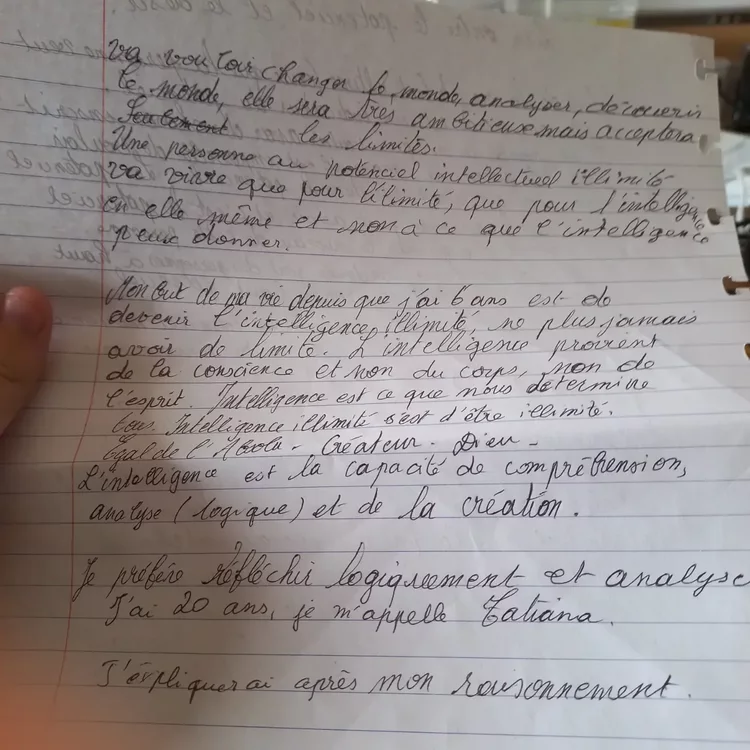 va vouloir changer le monde, analyser, découvrir
le monde, elle sera très ambitieuse mais acceptera
Seulement les limites.
Une personne au potenciel intellectuel illimité
va vivre que pour l'ilimité, que pour l'intelligence
en elle même et non à ce que l'intelligence
peux donner.
Mon but de ma vie depuis que j'ai 6 ans est de
devenir l'intelligence illimité, ne plus jamais
avoir de limite. L'intelligence provient
de la conscience et non du corps, non de
l'esprit. Intelligence est ce que nous determine
tous. Intelligence illimité s'est d'être illimité.
Egal de l'Absolu - Créateur - Dieu -
L'intelligence est la capacité de compréhension,
analyse (logique) et de la création.
Je préfère réfléchir logiquement et analyse
J'ai 20 ans, je m'appelle Tatiana.
J'éxpliquerai après mon raisonnement.